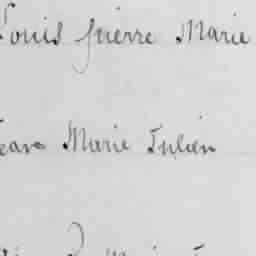 Louis pierre Marie
Jean Marie Julien